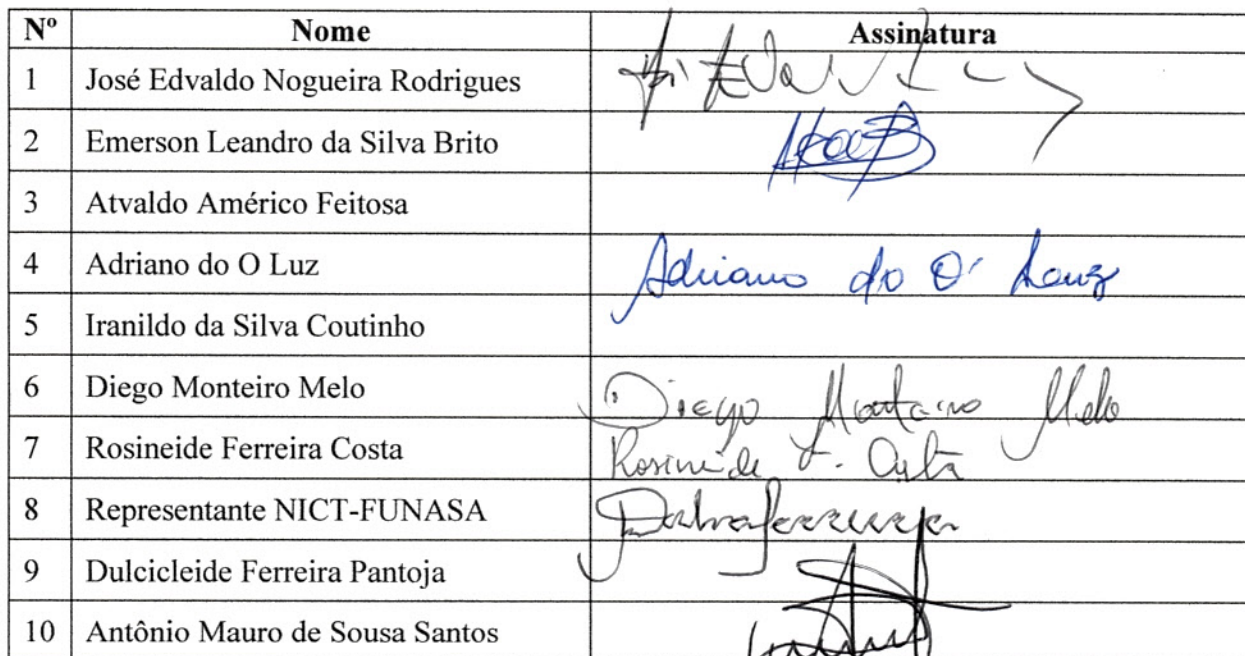 Nº Nome Assinatura
1 José Edvaldo Nogueira Rodrigues
2 Emerson Leandro da Silva Brito
3 Atvaldo Américo Feitosa
4 Adriano do O Luz Adriano do O' Luz
5 Iranildo da Silva Coutinho
6 Diego Monteiro Melo Diego Monteiro Melo
7 Rosineide Ferreira Costa Rosineide F. Costa
8 Representante NICT-FUNASA
9 Dulcicleide Ferreira Pantoja
10 Antônio Mauro de Sousa Santos